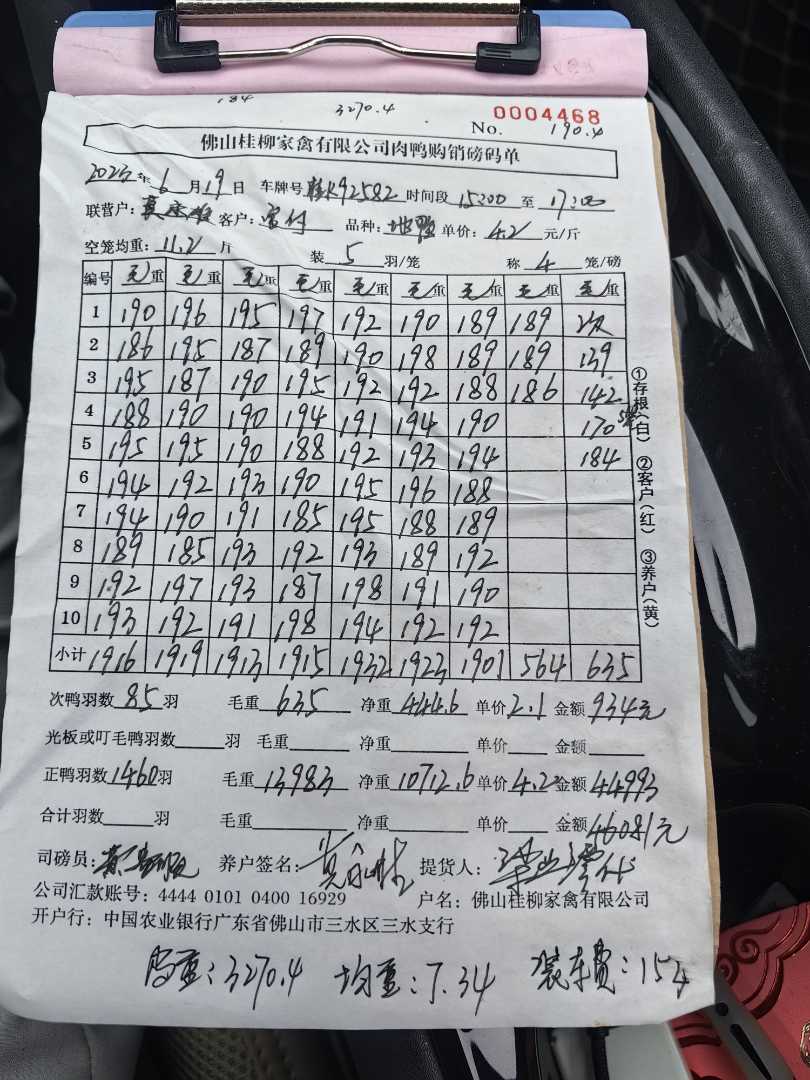 184 3270.4
0004468
No. 190.4
佛山桂柳家禽有限公司肉鸭购销磅码单
2023年6月19日 车牌号桂K92582 时间段 15:00 至 17:00
联营户: 客户: 品种: 单价: 4.2 元/斤
空笼均重: 11.2 斤 装 5 羽/笼 称 4 笼/磅
编号 毛重 毛重 毛重 毛重 毛重 毛重 毛重 毛重 毛重
1 190 196 195 197 192 190 189 189 次
2 186 195 187 189 190 198 189 189 139
3 195 187 190 195 192 192 188 186 142
4 188 190 190 194 191 194 190 170
5 195 195 190 188 192 193 194 184
6 194 192 193 190 195 196 188
7 194 190 191 185 195 188 189
8 189 185 193 192 193 189 192
9 192 197 193 187 198 191 190
10 193 192 191 198 194 192 192
小计 1916 1919 1913 1915 1932 1923 1901 564 635
①存根(白) ②客户(红) ③养户(黄)
次鸭羽数 85 羽 毛重 635 净重 444.6 单价 2.1 金额 934元
光板或叮毛鸭羽数 羽 毛重 净重 单价 金额
正鸭羽数 1460 羽 毛重 13983 净重 10712.6 单价 4.2 金额 44993
合计羽数 羽 毛重 净重 单价 金额 46081元
司磅员: 养户签名: 提货人:
公司汇款账号: 4444 0101 0400 16929 户名: 佛山桂柳家禽有限公司
开户行: 中国农业银行广东省佛山市三水区三水支行
皮重: 3270.4 均重: 7.34 装车费: 154